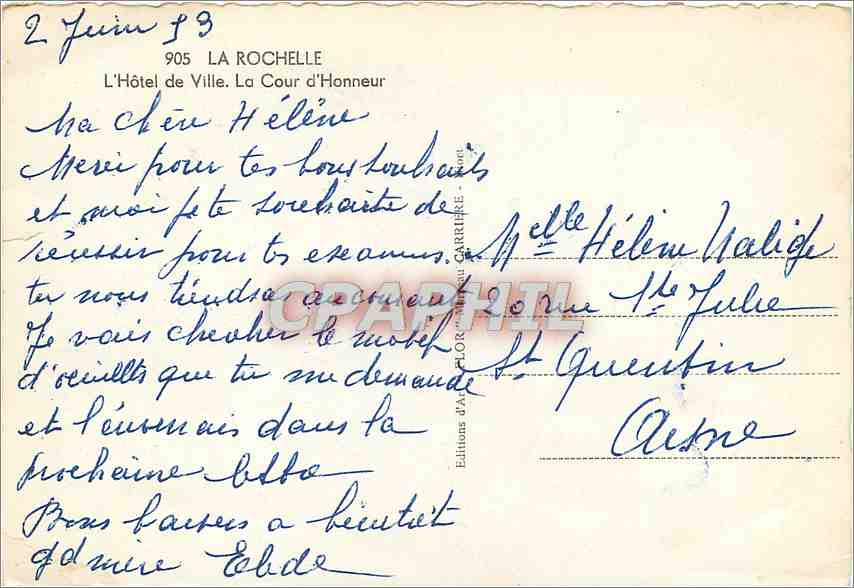 2 Juin 53
905 LA ROCHELLE
L'Hôtel de Ville. La Cour d'Honneur
Ma chère Hélène
Merci pour tes bons souhaits
et moi je te souhaite de
réussir pour tes examens.
tu nous tiendras au courant
Je vais chercher le motif
d'oeuillets que tu me demande
et l'enverrais dans la
prochaine lettre
Bons baisers a bientôt
gd mère
Melle Hélène
20 rue Ste Julie
St Quentin
Aisne
Editions d'Art "FLOR" CARRIERE -
CPAPHIL